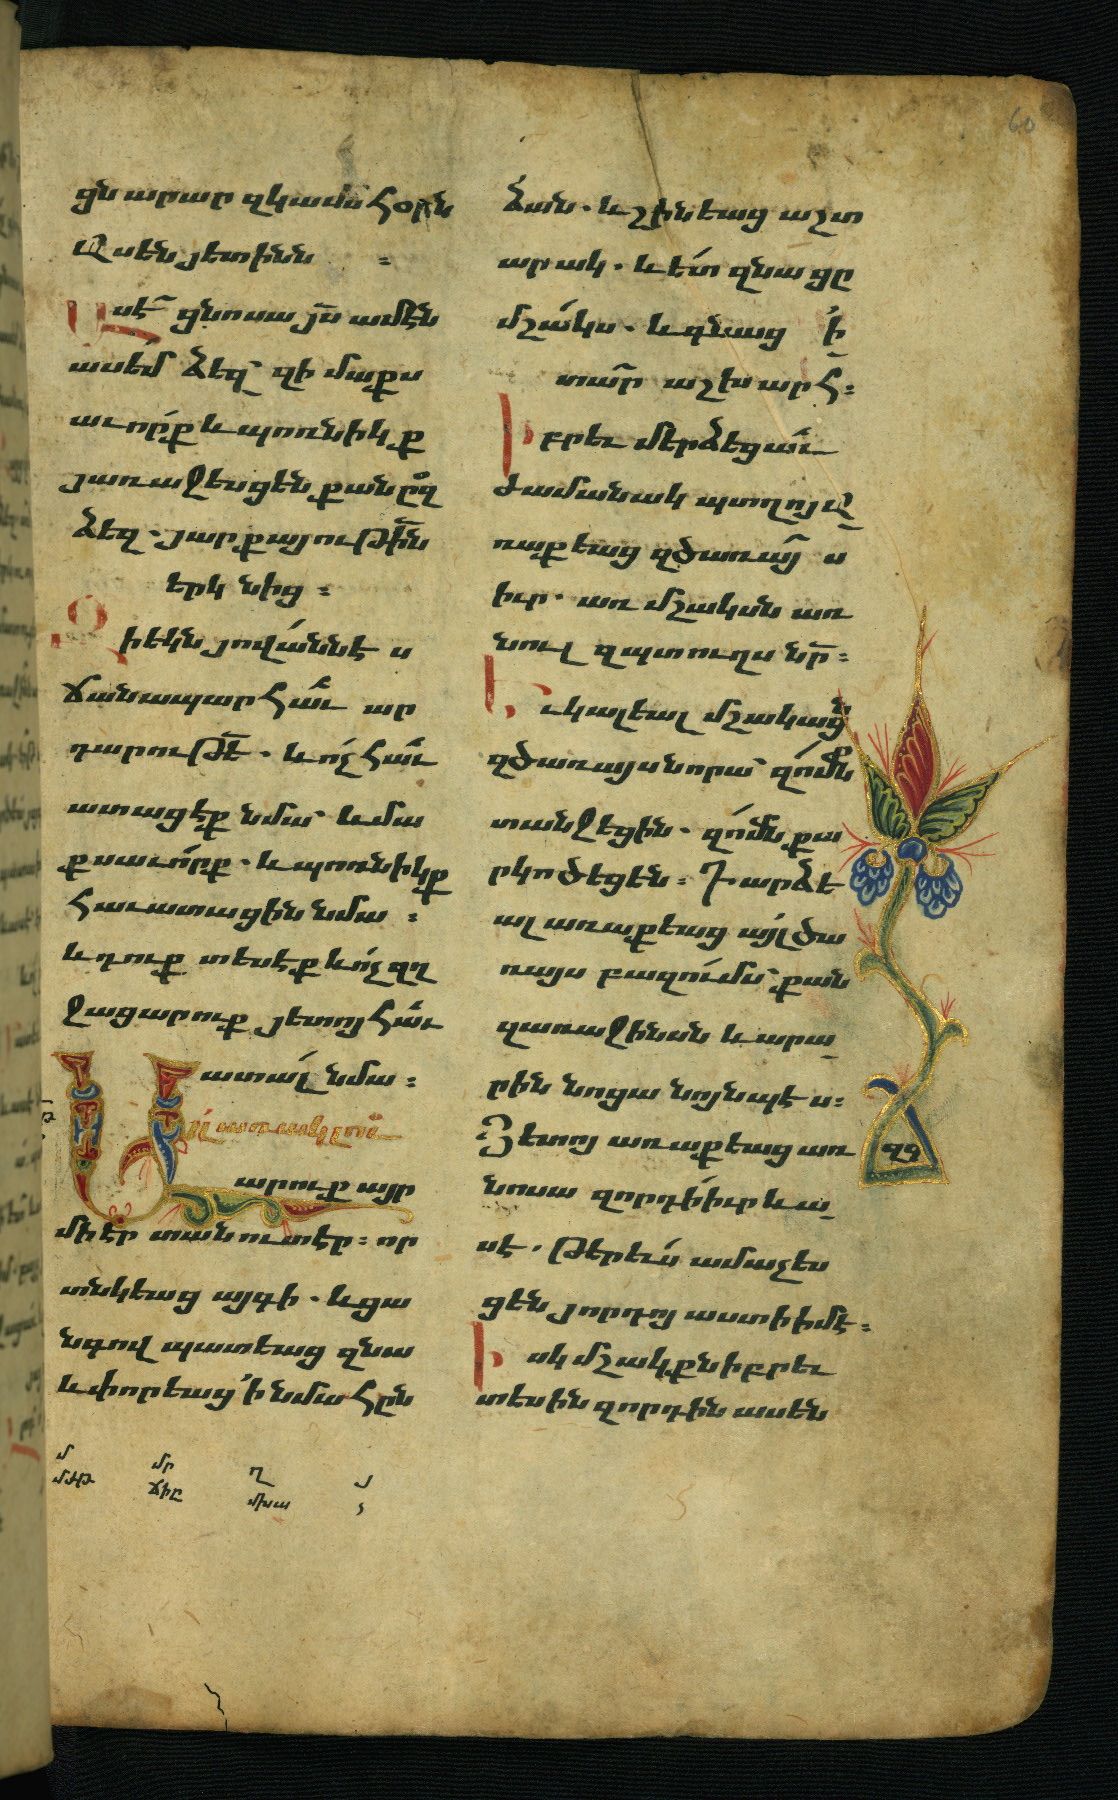 60
ցն արար զկամս հօրն
Ասեն յետինն ։
Ասէ՜ ցնոսա յ՜ս ամէն
ասեմ ձեզ՝ զի մաքս
աւորք և պոռնիկք
յառաջեսցեն քան ըզ
ձեզ․ յարքայութի՜ն
երկնից ։
Զի եկն յովաննէս
ճանապարհաւ ար
դարութե՜․ և ոչ հաւ
ատացէք նմա՝ և մա
քսաւորք․ և պոռնիկք
հաւատացին նմա ։
և դուք տեսէք և ոչ զղ
ջացարուք յետոյ հաւ
ատալ նմա ։
Այլ առակ լուա
րուք այր
մի էր տանուտէր ։ որ
տնկեաց այգի․ և ցա
նգով պատեաց զնա
և փորեաց ՚ի նմա հըն
ձան․ և շինեաց աշտ
արակ․ և ետ զնա ցը
մշակս․ և գնաց ՚ի
տար աշխարհ ։
Իբրեւ մերձեցաւ
ժամանակ պտղոյ ա
ռաքեաց զծառայս
իւր․ առ մշակսն առ
նուլ զպտուղս նր՜ ։
Եւ կալեալ մշակաց՜ն
զծառայս նորա՝ զոմն
տանջեցին․ զոմն քա
րկոծեցեն ։ Դարձե
ալ առաքեաց այլ ծա
ռայս բազումս՝ քան
զառաջինսն և արա
րին նոցա նոյնպէս ։
Յետոյ առաքեաց առ
նոսա զորդի իւր և ա
սէ․ թերեւս ամաչես
ցեն յորդոյ աստի իմէ ։
Իսկ մշակքն իբրեւ
տեսին զորդին ասեն
զգ
մ
մր
ղ
յ
ճիը